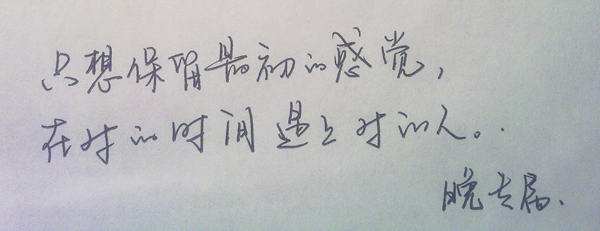 只想保留最初的感觉，
在对的时间遇上对的人。.
晚专属.